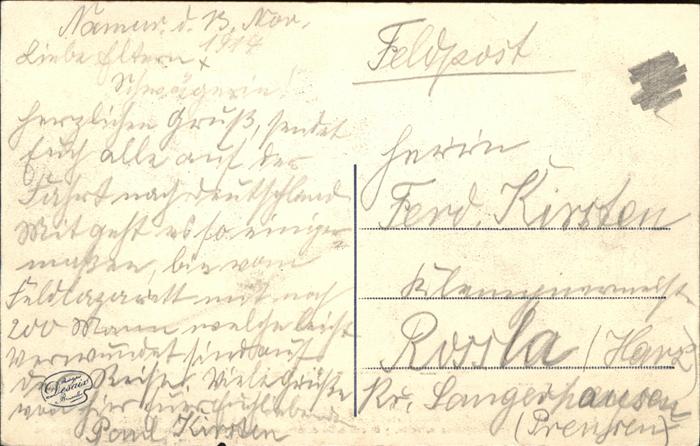 Namur, d. 13. Nov.
1914
Liebe Eltern +
Schwägerin!
herzlichen Gruß, sendet
Euch alle auf der
Fahrt nach Deutschland
Mit geht es so einiger-
maßen, bin vom
Feldlazarett mit noch
200 Mann welche leicht
Verwundet sind auf
der Reise. Viele Grüße
von hier euer
Paul Kirsten
Feldpost
Herrn
Ferd. Kirsten
Klempnermeist
Rossla (Harz)
Kr. Sangerhausen
(Preußen)
Desaix